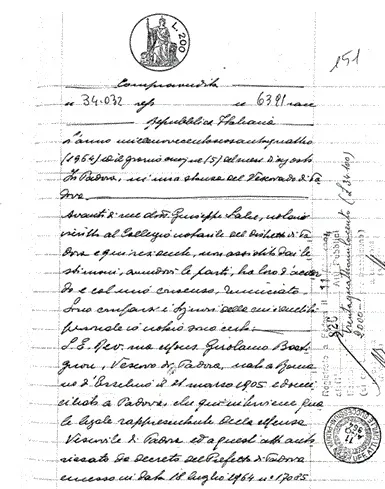 L. 200
151
Compravendita
n 34.032 rep n 6391 racc
Repubblica Italiana
L'anno millenovecentosessantaquattro
(1964) il giorno cinque (5) del mese di agosto
In Padova, in una stanza del Vescovado di Pa
dova.
Avanti di me dott. Giuseppe notaio
iscritto al Collegio notarile del distretto di Pa
dova e qui residente, non assistito dai te
stimoni, avendovi le parti, tra loro d'accor
do e col mio consenso, rinunciato.
Sono comparsi i signori della cui identità
personale io notaio sono certo:
S. E. Rev.ma Mons. Girolamo Bort
gnon, Vescovo di Padova, nato a Roma
no d'Ezzelino il 21 marzo 1905 e domi
ciliato a Padova, che qui interviene qua
le legale rappresentante della Mensa
Vescovile di Padova ed a questo atto auto
rizzato da decreto del Prefetto di Padova
emesso in data 18 luglio 1964 n° 17085